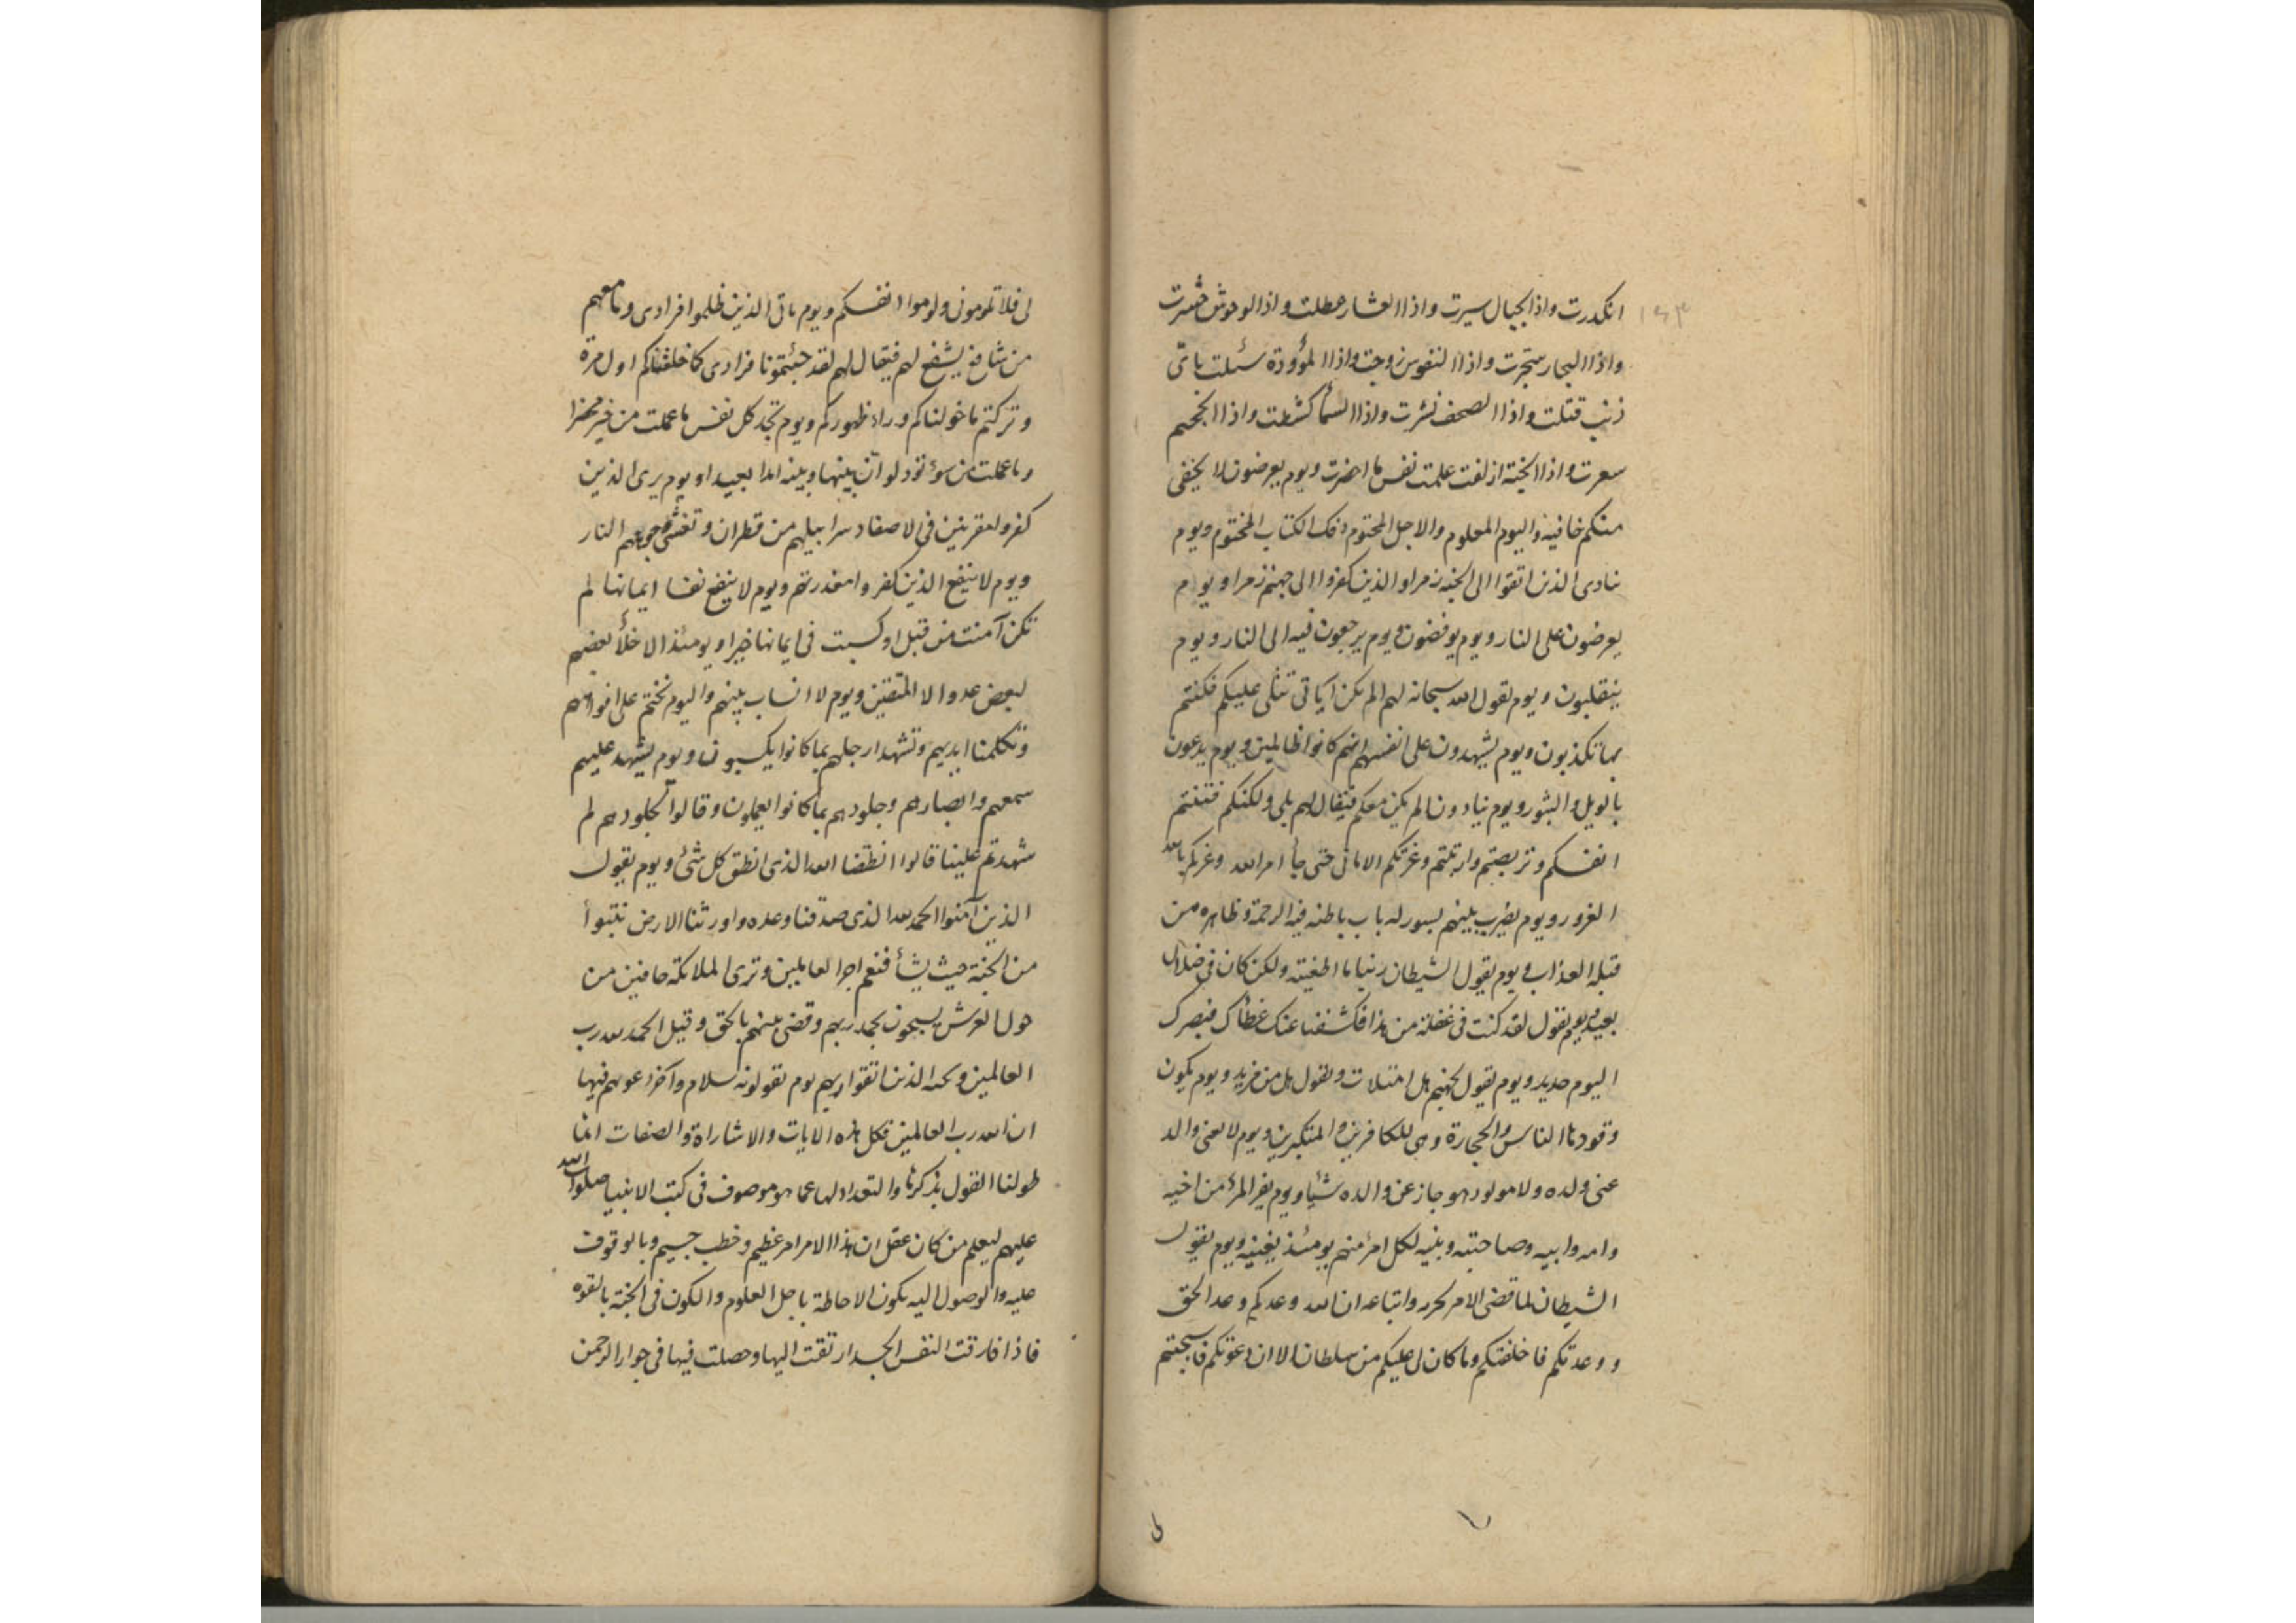 ١٤٣
انكدرت واذا الجبال سيرت واذا العشار عطلت واذا الوحوش حشرت
واذا البحار سجرت واذا النفوس زوجت واذا المؤودة سئلت باى
ذنب قتلت واذا الصحف نشرت واذا السمأ كشطت واذا الجحيم
سعرت واذا الجنة ازلفت علمت نفس ما احضرت ويوم يعرضون لا يخفى
منكم خافية واليوم المعلوم والاجل المحتوم وفك الكتاب المختوم ويوم
نادى الذين اتقوا الى الجنه زمرا والذين كفروا الى جهنم زمرا ويوم
يعرضون على النار ويوم يوفضون ويوم يرجعون فيه الى النار ويوم
ينقلبون ويوم يقول الله سبحانه لهم الم تكن آياتى تتلى عليكم فكنتم
بها تكذبون ويوم يشهدون على انفسهم انهم كانوا ظالمين ويوم يدعون
بالويل والثبور ويوم ينادون الم نكن معكم فيقال لهم بلى ولكنكم فتنتم
انفسكم وتربصتم وارتبتم وغرتكم الامانى حتى جأ امر الله وغركم بالله
الغرور ويوم يضرب بينهم بسور له باب باطنه فيه الرحمة وظاهره من
قبله العذاب ويوم يقول الشيطان ربنا ما اطغيته ولكن كان فى ضلال
بعيد ويوم يقول لقد كنت فى غفلة من هذا فكشفنا عنك غطأك فبصرك
اليوم حديد ويوم يقول لجهنم هل امتلات وتقول هل من مزيد ويوم يكون
وقودها الناس والحجارة وهى للكافرين والمتكبرين ويوم لا يغنى والد
عنى ولده ولا مولود هو جاز عن والده شيأ ويوم يفر المرء من اخيه
وامه وابيه وصاحبته وبنيه لكل امرء منهم يومئذ يغنيه ويوم يقول
الشيطان لما قضى الامر لحزبه واتباعه ان الله وعدكم وعد الحق
ووعدتكم فاخلفتكم وما كان لى عليكم من سلطان الا ان دعوتكم فاستجبتم
لى فلا تلومونى ولوموا انفسكم ويوم ياتى الذين ظلموا فرادى وما معهم
من شافع يشفع لهم فيقال لهم لقد جئتمونا فرادى كما خلقناكم اول مرة
وتركتم ما خولناكم وراء ظهوركم ويوم تجد كل نفس ما عملت من خير محضرا
وما عملت من سوء تود لو ان بينها وبينه امدا بعيدا ويوم يرى الذين
كفروا مقرنين فى الاصفاد سرابيلهم من قطران وتغشى وجوههم النار
ويوم لا ينفع الذين كفروا معذرتهم ويوم لا ينفع نفسا ايمانها لم
تكن آمنت من قبل او كسبت فى ايمانها خيرا ويومئذ الاخلأ بعضهم
لبعض عدو الا المتقين ويوم لا انساب بينهم واليوم نختم على افواههم
وتكلمنا ايديهم وتشهد ارجلهم بما كانوا يكسبون ويوم يشهد عليهم
سمعهم وابصارهم وجلودهم بما كانوا يعملون وقالوا لجلودهم لم
شهدتم علينا قالوا انطقنا الله الذى انطق كل شئ ويوم يقول
الذين آمنوا الحمد لله الذى صدقنا وعده واورثنا الارض نتبوأ
من الجنة حيث يشأ فنعم اجر العاملين وترى الملائكة حافين من
حول العرش يسبحون بحمد ربهم وقضى بينهم بالحق وقيل الحمد لله رب
العالمين الذين اتقوا ربهم يوم يقولونه سلام وآخر دعوهم فيها
ان الله رب العالمين فكل هذه الايات والاشاراة والصفات انما
طولنا القول بذكرها والتعداد لها عما هو موصوف فى كتب الانبيا صلوات الله
عليهم ليعلم من كان عقل ان هذا الامر امر عظيم وخطب جسيم وبالوقوف
عليه والوصول اليه يكون الاحاطة باجل العلوم والكون فى الجنة بالقوه
فاذا فارقت النفس الجسد ارتقت اليها وحصلت فيها فى جوار الرحمن